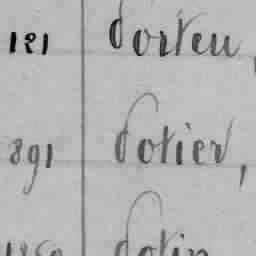 121 dorteu,
891 dotier,
dotin